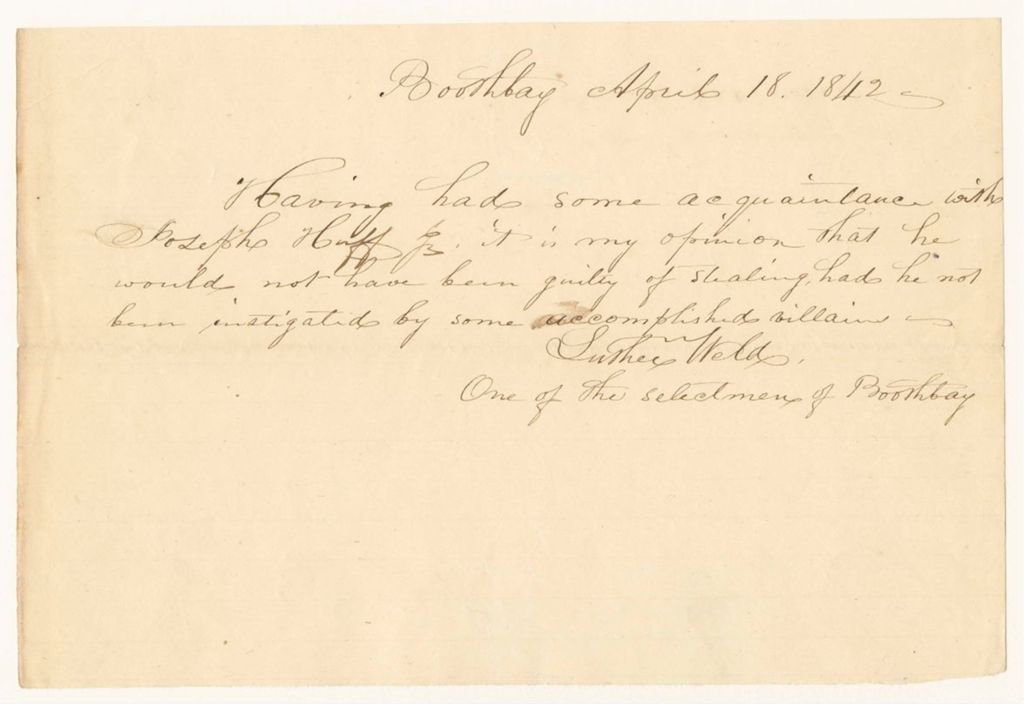 Boothbay April 18. 1842
Having had some acquaintance with
Joseph Huff Jr. it is my opinion that he
would not have been guilty of stealing, had he not
been instigated by some accomplished villain
Luther Weld.
One of the selectmen of Boothbay